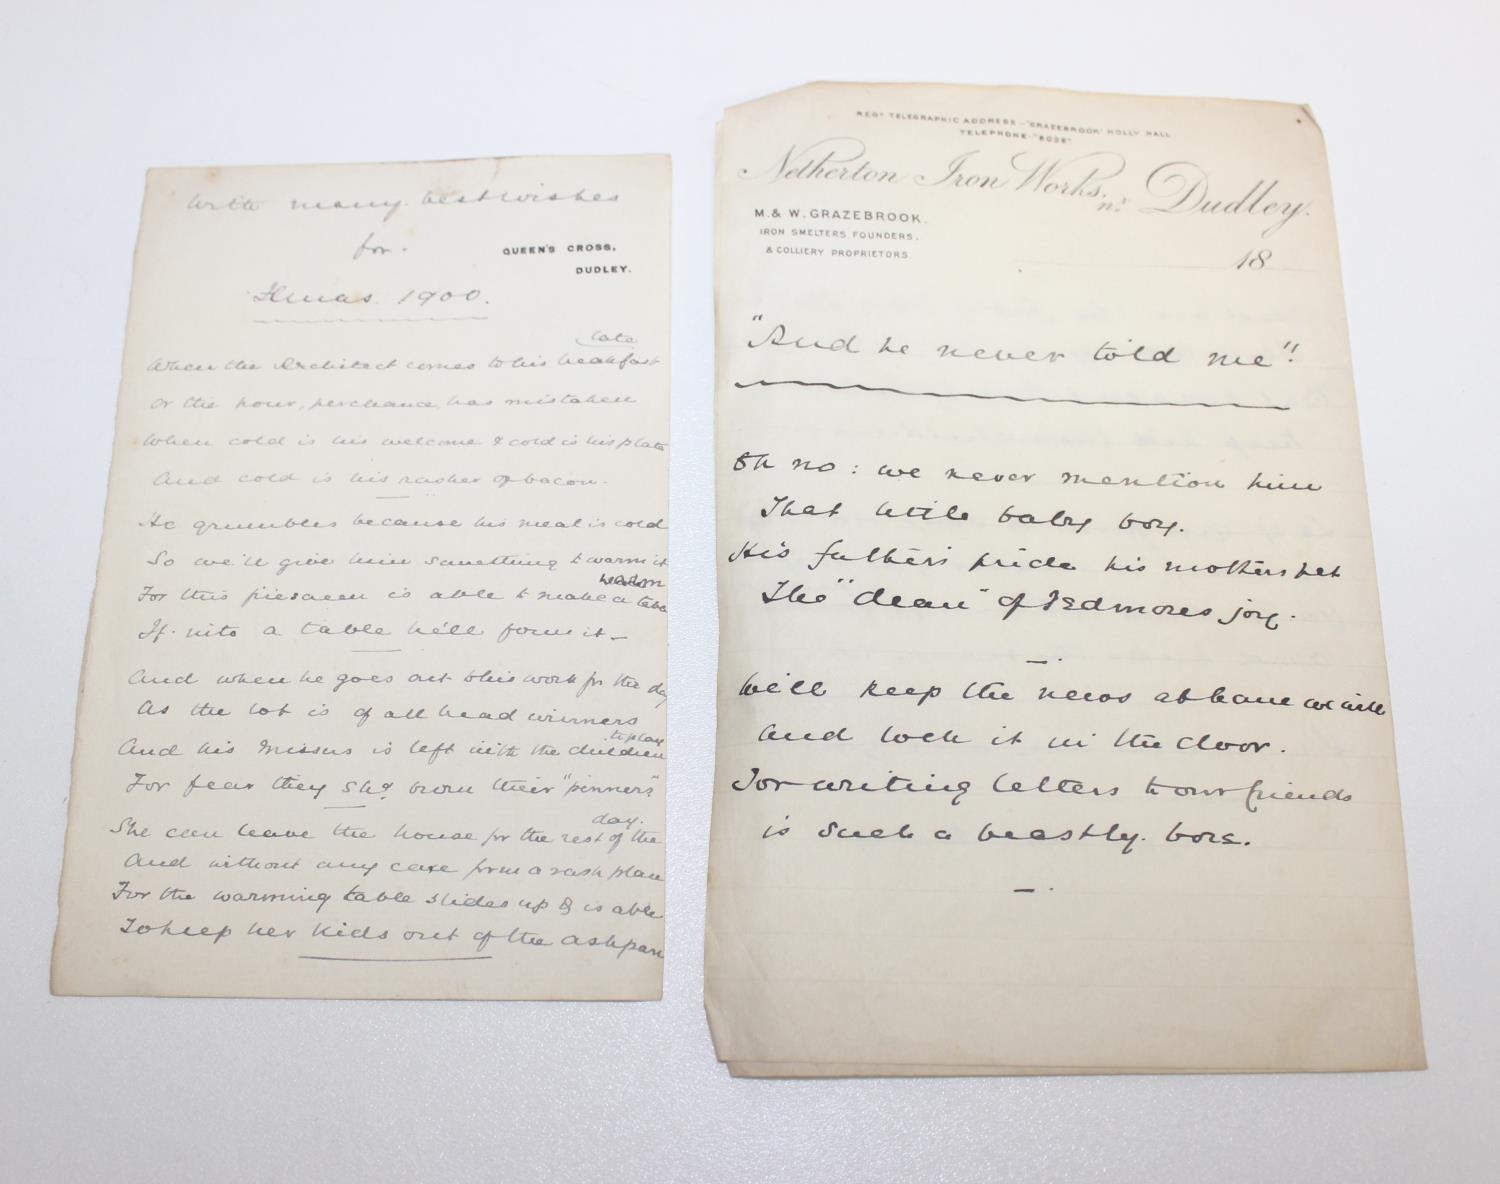 With many best wishes
for
QUEEN'S CROSS,
DUDLEY.
Xmas 1900.
When the Architect comes to his breakfast late
Or the hour, perchance, has mistaken
When cold is his welcome & cold is his plate
And cold is his rasher of bacon.
He grumbles because his meal is cold
So we'll give him something to warm it
For this is able to make a table warm
If into a table he'll form it
And when he goes out to his work for the day
As the lot is of all head winners
And his Missus is left with the children to play
For fear they shd burn their "pinners"
She can leave the house for the rest of the day.
And without any care form a rash plan
For the warming table slides up & is able
To keep her kids out of the ashpan
REGD TELEGRAPHIC ADDRESS - "GRAZEBROOK" HOLLY HALL
TELEPHONE - "ROSE"
Netherton Iron Works, nr Dudley.
M. & W. GRAZEBROOK.
IRON SMELTERS, FOUNDERS,
& COLLIERY PROPRIETORS.
18
"And he never told me"!
Oh no: we never mention him
That little baby boy.
His father's pride his mothers pet
The "dean" of joy.
We'll keep the news at home we will
And lock it in the door.
For writing letters to our friends
is such a beastly bore.